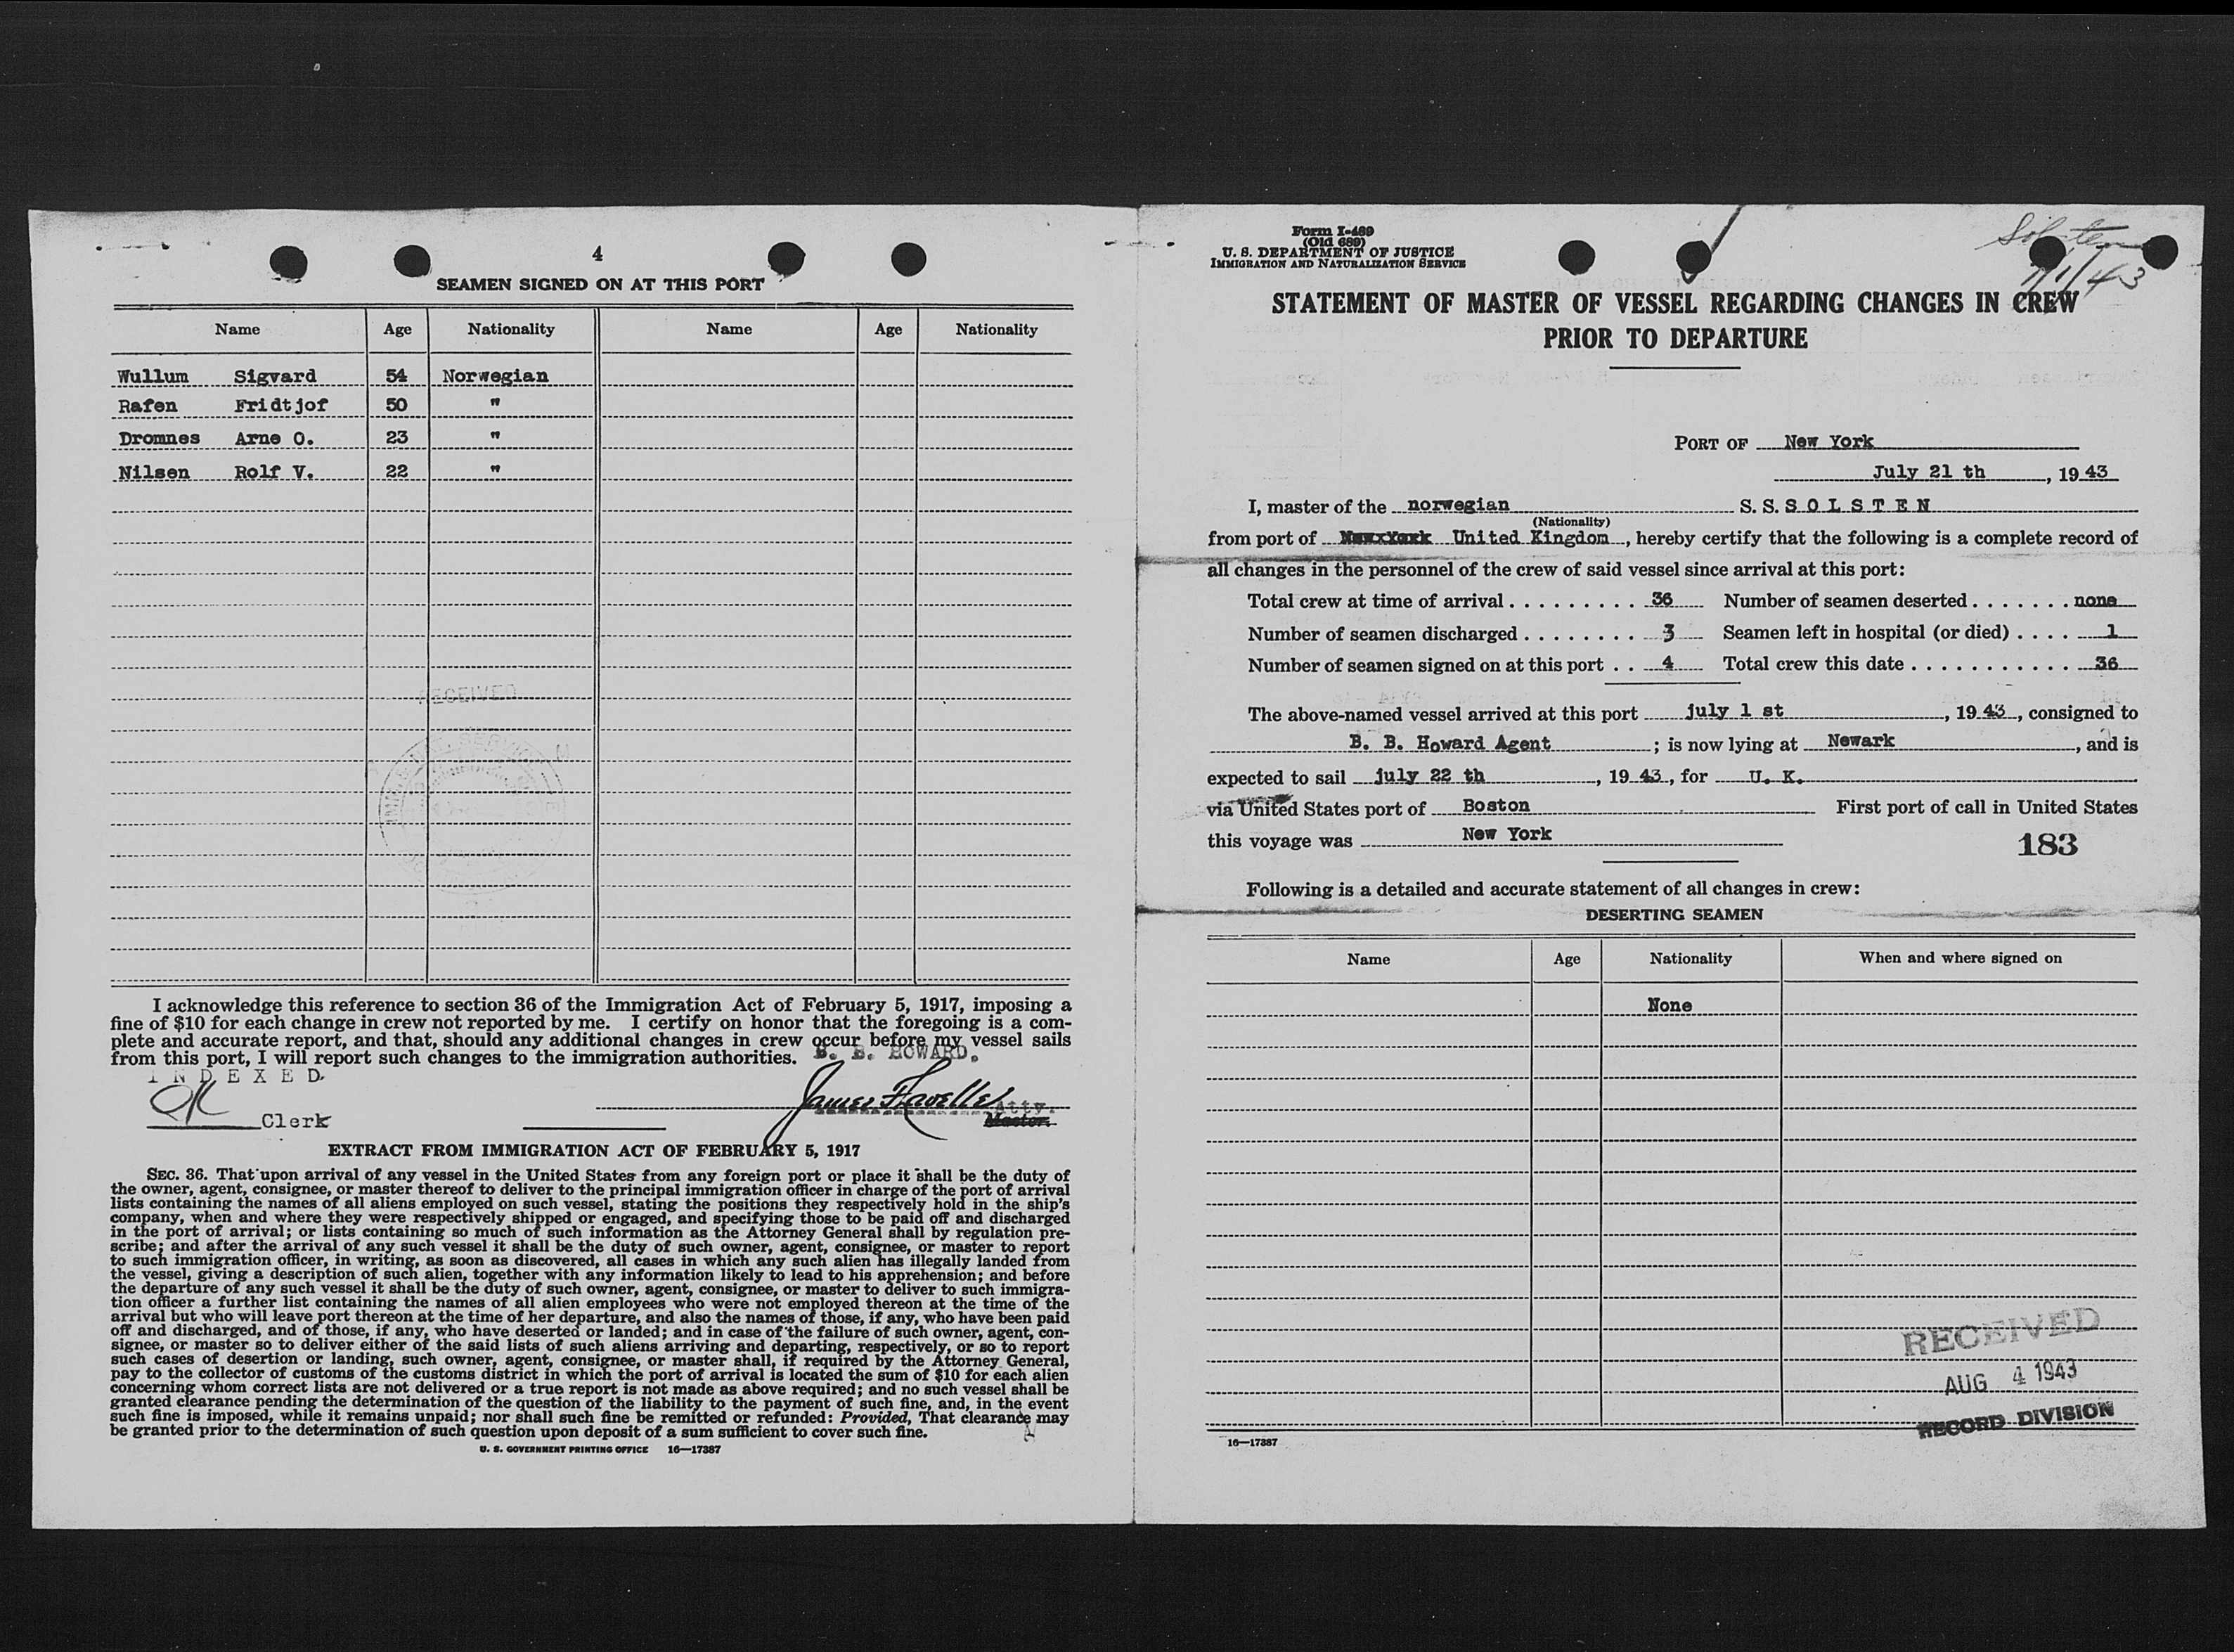 4
SEAMEN SIGNED ON AT THIS PORT
Name Age Nationality Name Age Nationality
Wullum Sigvard 54 Norwegian
Rafen Fridtjof 50 "
Dromnes Arne O. 23 "
Nilsen Rolf V. 22 "
RECEIVED
I acknowledge this reference to section 36 of the Immigration Act of February 5, 1917, imposing a
fine of $10 for each change in crew not reported by me. I certify on honor that the foregoing is a com-
plete and accurate report, and that, should any additional changes in crew occur before my vessel sails
from this port, I will report such changes to the immigration authorities. B. B. HOWARD.
INDEXED
OK Clerk
James Lavelle Atty.
Master.
EXTRACT FROM IMMIGRATION ACT OF FEBRUARY 5, 1917
SEC. 36. That upon arrival of any vessel in the United States from any foreign port or place it shall be the duty of
the owner, agent, consignee, or master thereof to deliver to the principal immigration officer in charge of the port of arrival
lists containing the names of all aliens employed on such vessel, stating the positions they respectively hold in the ship's
company, when and where they were respectively shipped or engaged, and specifying those to be paid off and discharged
in the port of arrival; or lists containing so much of such information as the Attorney General shall by regulation pre-
scribe; and after the arrival of any such vessel it shall be the duty of such owner, agent, consignee, or master to report
to such immigration officer, in writing, as soon as discovered, all cases in which any such alien has illegally landed from
the vessel, giving a description of such alien, together with any information likely to lead to his apprehension; and before
the departure of any such vessel it shall be the duty of such owner, agent, consignee, or master to deliver to such immigra-
tion officer a further list containing the names of all alien employees who were not employed thereon at the time of the
arrival but who will leave port thereon at the time of her departure, and also the names of those, if any, who have been paid
off and discharged, and of those, if any, who have deserted or landed; and in case of the failure of such owner, agent, con-
signee, or master so to deliver either of the said lists of such aliens arriving and departing, respectively, or so to report
such cases of desertion or landing, such owner, agent, consignee, or master shall, if required by the Attorney General,
pay to the collector of customs of the customs district in which the port of arrival is located the sum of $10 for each alien
concerning whom correct lists are not delivered or a true report is not made as above required; and no such vessel shall be
granted clearance pending the determination of the question of the liability to the payment of such fine, and, in the event
such fine is imposed, while it remains unpaid; nor shall such fine be remitted or refunded: Provided, That clearance may
be granted prior to the determination of such question upon deposit of a sum sufficient to cover such fine.
U. S. GOVERNMENT PRINTING OFFICE 16—17387
Form I-489
(Old 689)
U. S. DEPARTMENT OF JUSTICE
IMMIGRATION AND NATURALIZATION SERVICE
Solsten
7/1/43
STATEMENT OF MASTER OF VESSEL REGARDING CHANGES IN CREW
PRIOR TO DEPARTURE
PORT OF New York
July 21 th, 1943
I, master of the norwegian S. S. SOLSTEN
(Nationality)
from port of New York United Kingdom, hereby certify that the following is a complete record of
all changes in the personnel of the crew of said vessel since arrival at this port:
Total crew at time of arrival . . . . . . . . . 36 Number of seamen deserted . . . . . . . none
Number of seamen discharged . . . . . . . . 3 Seamen left in hospital (or died) . . . . 1
Number of seamen signed on at this port . . 4 Total crew this date . . . . . . . . . . . 36
The above-named vessel arrived at this port july 1 st, 1943, consigned to
B. B. Howard Agent; is now lying at Newark, and is
expected to sail july 22 th, 1943, for U. K.
via United States port of Boston First port of call in United States
this voyage was New York
183
Following is a detailed and accurate statement of all changes in crew:
DESERTING SEAMEN
Name Age Nationality When and where signed on
None
RECEIVED
AUG 4 1943
RECORD DIVISION
16—17387